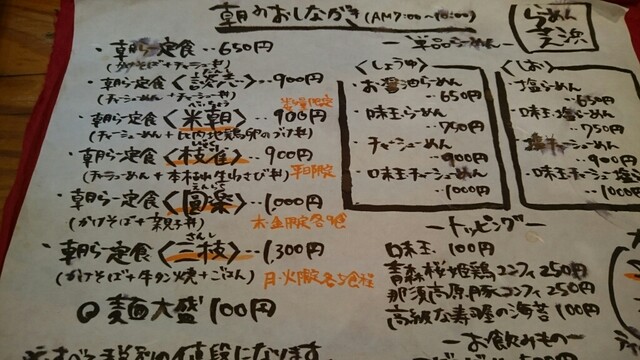 朝のおしながき (AM7:00～10:00)
らぁめん
芝浜
・朝ら定食‥650円
(かけそば+チャーシュー丼)
・朝ら定食〈談志〉‥900円
(チャーシューめん+チャーシュー丼)
数量限定
・朝ら定食〈米朝〉‥900円
・朝ら定食〈枝雀〉‥900円
(チャーラーめん+本枯れ生山さび丼)
平日限定
・朝ら定食〈圓楽〉‥1,000円
(かけそば+親子丼)
木・金限定各9食
・朝ら定食〈三枝〉‥1,300円
(かけそば+牛タン焼+ごはん)
月・火限定各5食程
◎麺大盛100円
―単品らーめん―
〈しょうゆ〉
・お醤油らーめん
‥650円
・味玉らーめん
‥750円
・チャーシューめん
‥900円
・味玉チャーシューめん
‥1000円
〈しお〉
・塩らーめん
‥650円
・味玉塩らーめん
‥750円
・塩チャーシューめん
‥900円
・味玉チャーシュー塩
‥1000円
―トッピング―
味玉 100円
青森桜姫鶏コンフィ 250円
那須高原豚コンフィ 250円
高級な寿司屋の海苔 100円
―お飲みもの―
の値段になります。